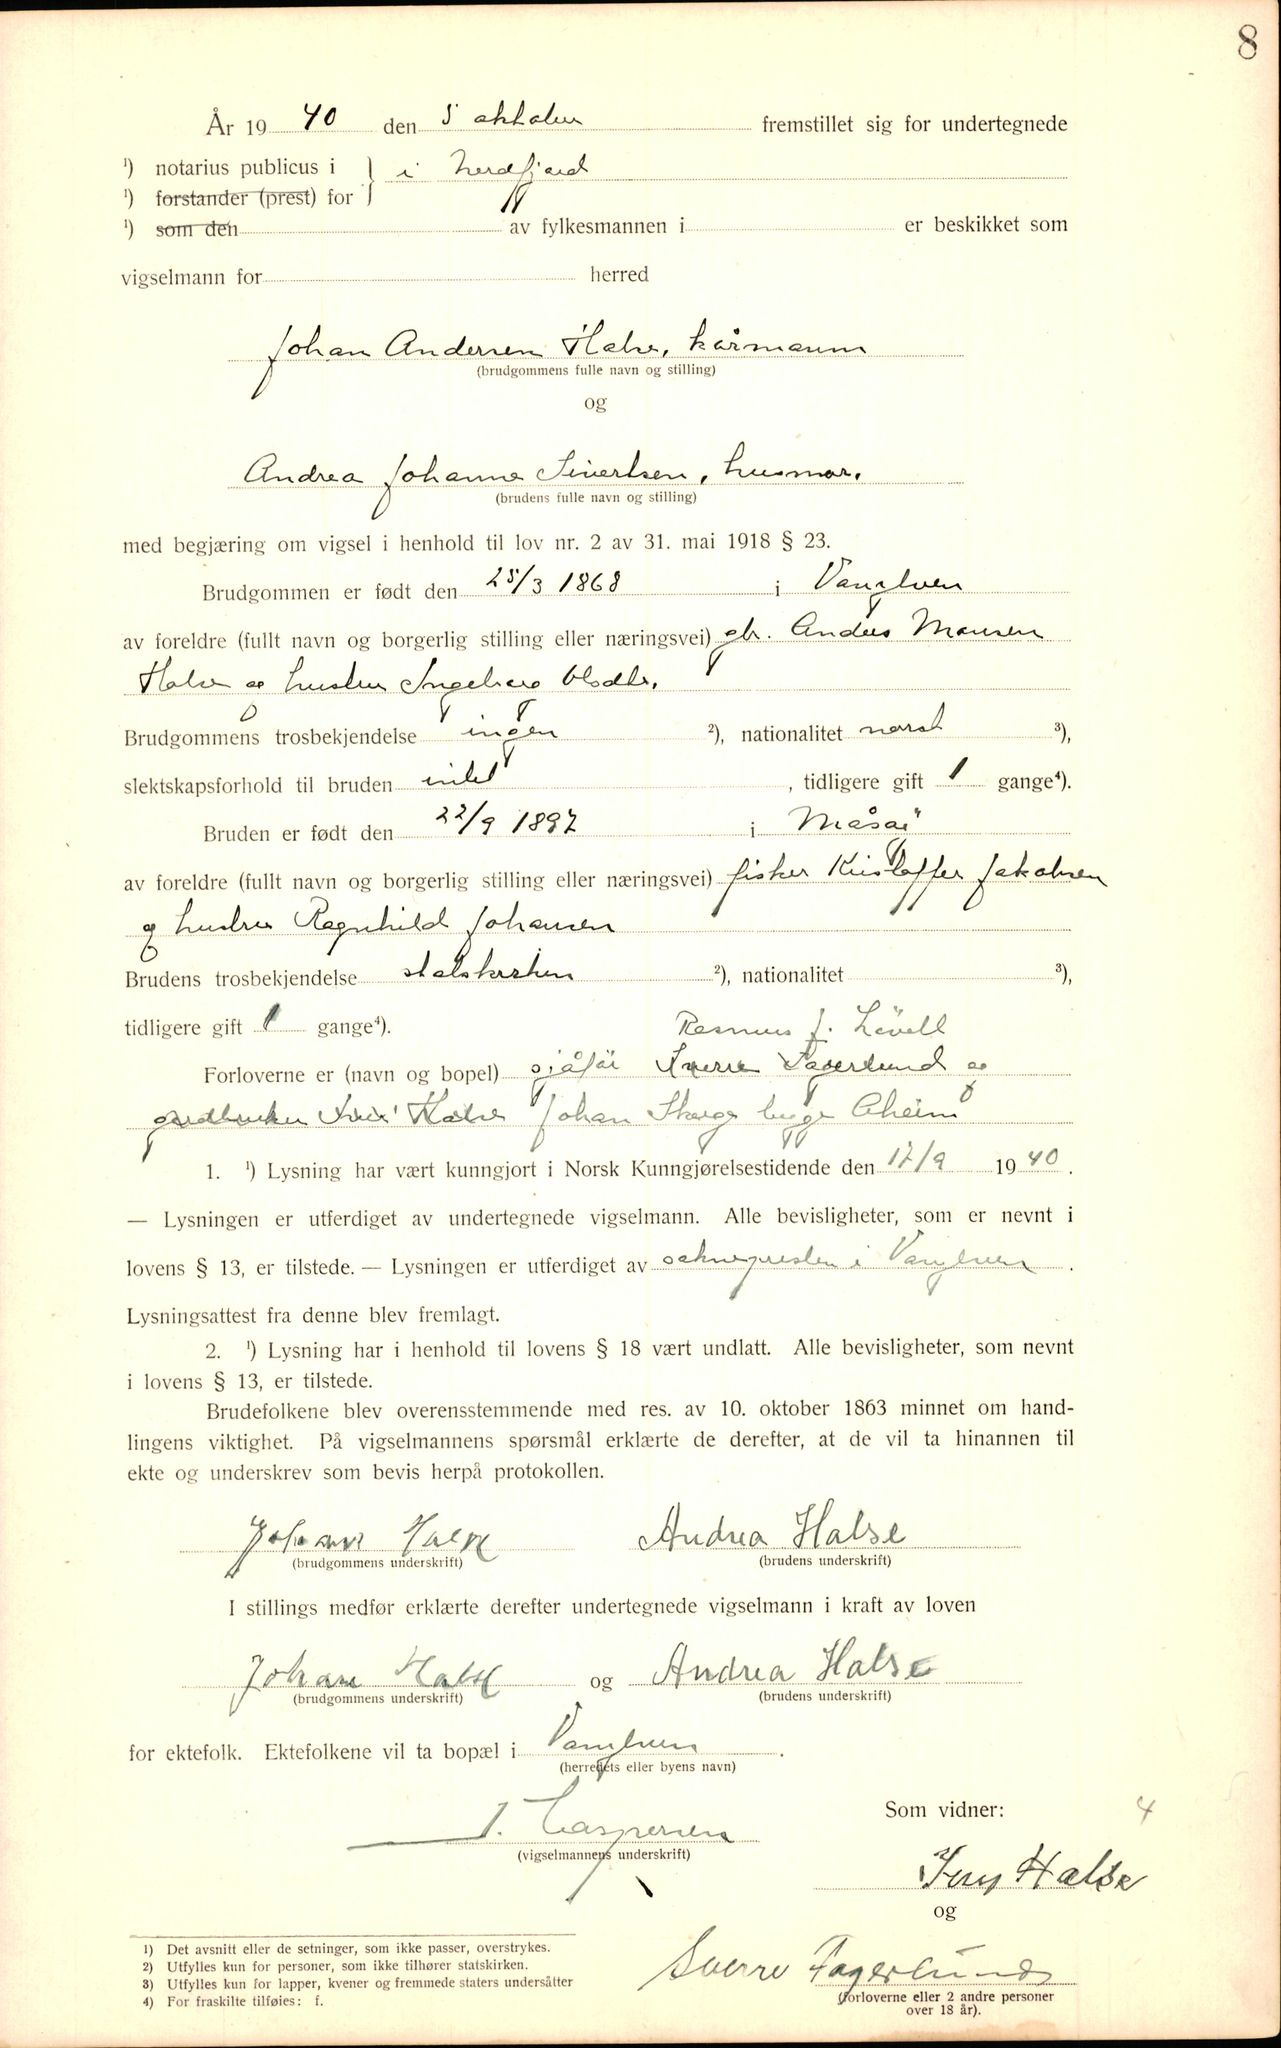 8
År 19 40 den 5 oktober fremstillet sig for undertegnede
1) notarius publicus i } i Nordfjord
1) forstander (prest) for
1) som den av fylkesmannen i er beskikket som
vigselmann for herred
Johan Andersen Halse, kårmann
(brudgommens fulle navn og stilling)
og
Andrea Johanna Sivertsen, husmor.
(brudens fulle navn og stilling)
med begjæring om vigsel i henhold til lov nr. 2 av 31. mai 1918 § 23.
Brudgommen er født den 25/3 1868 i Vanylven
av foreldre (fullt navn og borgerlig stilling eller næringsvei) gbr. Anders Monsen
Halse og hustru Ingeborg
Brudgommens trosbekjendelse ingen 2), nationalitet norsk 3),
slektskapsforhold til bruden intet, tidligere gift 1 gange4).
Bruden er født den 22/9 1897 i Måsøi
av foreldre (fullt navn og borgerlig stilling eller næringsvei) fisker Kristoffer Jakobsen
og hustru Ragnhild Johansen
Brudens trosbekjendelse statskirken 2), nationalitet 3),
tidligere gift 1 gange4).
Rasmus J. Løvoll
Forloverne er (navn og bopel) sjåfør Sverre Fagerlund og
gardbruker Halse Johan begge Åheim
1. 1) Lysning har vært kunngjort i Norsk Kunngjørelsestidende den 17/9 1940.
— Lysningen er utferdiget av undertegnede vigselmann. Alle bevisligheter, som er nevnt i
lovens § 13, er tilstede. — Lysningen er utferdiget av soknepresten i Vanylven.
Lysningsattest fra denne blev fremlagt.
2. 1) Lysning har i henhold til lovens § 18 vært undlatt. Alle bevisligheter, som nevnt
i lovens § 13, er tilstede.
Brudefolkene blev overensstemmende med res. av 10. oktober 1863 minnet om hand-
lingens viktighet. På vigselmannens spørsmål erklærte de derefter, at de vil ta hinannen til
ekte og underskrev som bevis herpå protokollen.
Johan Halse Andrea Halse
(brudgommens underskrift) (brudens underskrift)
I stillings medfør erklærte derefter undertegnede vigselmann i kraft av loven
Johan Halse og Andrea Halse
(brudgommens underskrift) (brudens underskrift)
for ektefolk. Ektefolkene vil ta bopæl i Vanylven.
(herredets eller byens navn)
Som vidner: 4
J. Caspersen
(vigselmannens underskrift)
Halse
og
Sverre Fagerlund
(forloverne eller 2 andre personer
over 18 år).
1) Det avsnitt eller de setninger, som ikke passer, overstrykes.
2) Utfylles kun for personer, som ikke tilhører statskirken.
3) Utfylles kun for lapper, kvener og fremmede staters undersåtter
4) For fraskilte tilføies: f.